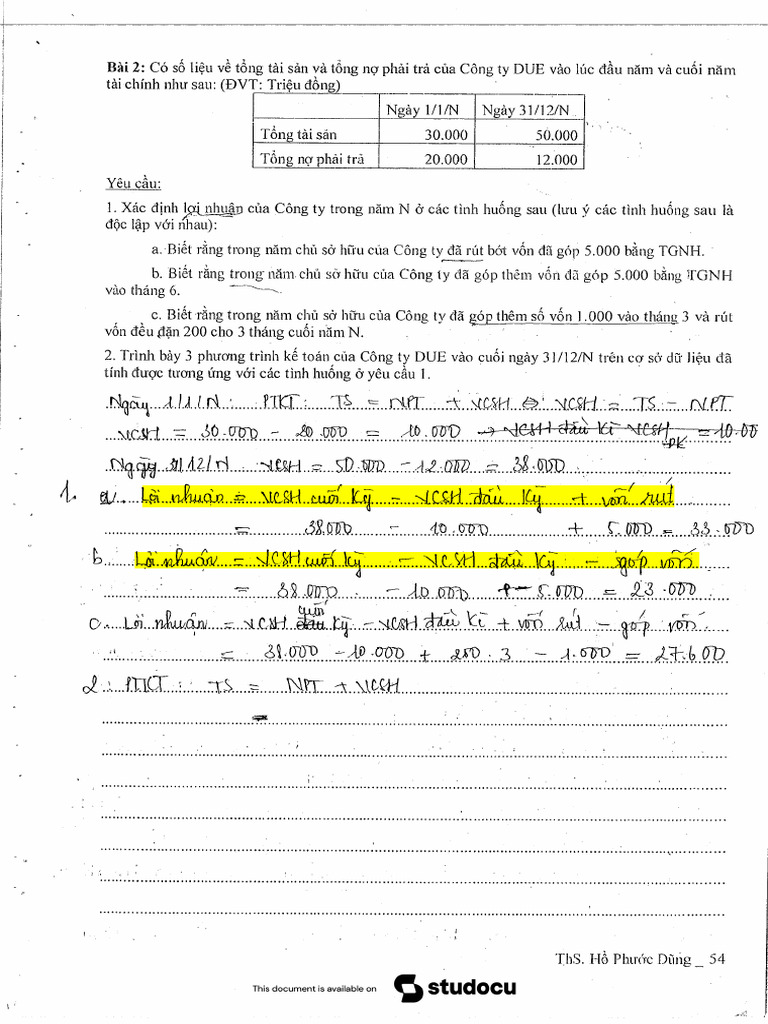 Bài 2: Có số liệu về tổng tài sản và tổng nợ phải trả của Công ty DUE vào lúc đầu năm và cuối năm
tài chính như sau: (ĐVT: Triệu đồng)
Ngày 1/1/N Ngày 31/12/N
Tổng tài sản 30.000 50.000
Tổng nợ phải trả 20.000 12.000
Yêu cầu:
1. Xác định lợi nhuận của Công ty trong năm N ở các tình huống sau (lưu ý các tình huống sau là
độc lập với nhau):
a. Biết rằng trong năm chủ sở hữu của Công ty đã rút bớt vốn đã góp 5.000 bằng TGNH.
b. Biết rằng trong năm chủ sở hữu của Công ty đã góp thêm vốn đã góp 5.000 bằng TGNH
vào tháng 6.
c. Biết rằng trong năm chủ sở hữu của Công ty đã góp thêm số vốn 1.000 vào tháng 3 và rút
vốn đều đặn 200 cho 3 tháng cuối năm N.
2. Trình bày 3 phương trình kế toán của Công ty DUE vào cuối ngày 31/12/N trên cơ sở dữ liệu đã
tính được tương ứng với các tình huống ở yêu cầu 1.
Ngày 1/1/N: PTKT: TS = NPT + VCSH ⇔ VCSH = TS - NPT
VCSH = 30.000 - 20.000 = 10.000 → VCSH đầu kì VCSH ĐK = 10.00
Ngày 31/12/N VCSH = 50.000 - 12.000 = 38.000
1. a. Lợi nhuận = VCSH cuối kỳ - VCSH đầu kỳ + vốn rút
= 38.000 - 10.000 + 5.000 = 33.000
b. Lợi nhuận = VCSH cuối kỳ - VCSH đầu kỳ - góp vốn
= 38.000 - 10.000 - 5.000 = 23.000
c. Lợi nhuận = VCSH đầu cuối kỳ - VCSH đầu kì + vốn rút - góp vốn
= 38.000 - 10.000 + 200 . 3 - 1.000 = 27.600
2. PTKT: TS = NPT + VCSH
=
ThS. Hồ Phước Dũng _ 54
This document is available on studocu